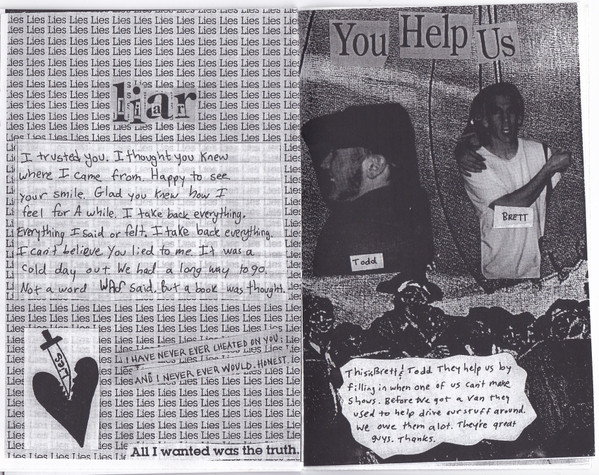 Lies Lies Lies Lies Lies Lies Lies Lies Lies Lies
liar
I trusted you. I thought you knew
where I came from. Happy to see
your smile. Glad you knew how I
feel for A while. I take back everything.
Everything I said or felt, I take back everything.
I can't believe you lied to me. It was a
cold day out we had a long way to go.
Not a word was said. But a book was thought.
I HAVE NEVER EVER CHEATED ON YOU.
AND I NEVER EVER WOULD. HONEST
All I wanted was the truth.
You Help Us
BRETT
Todd
This is Brett & Todd They help us by
filling in when one of us can't make
shows. Before we got a van they
used to help drive our stuff around.
We owe them alot. They're great
guys. Thanks.